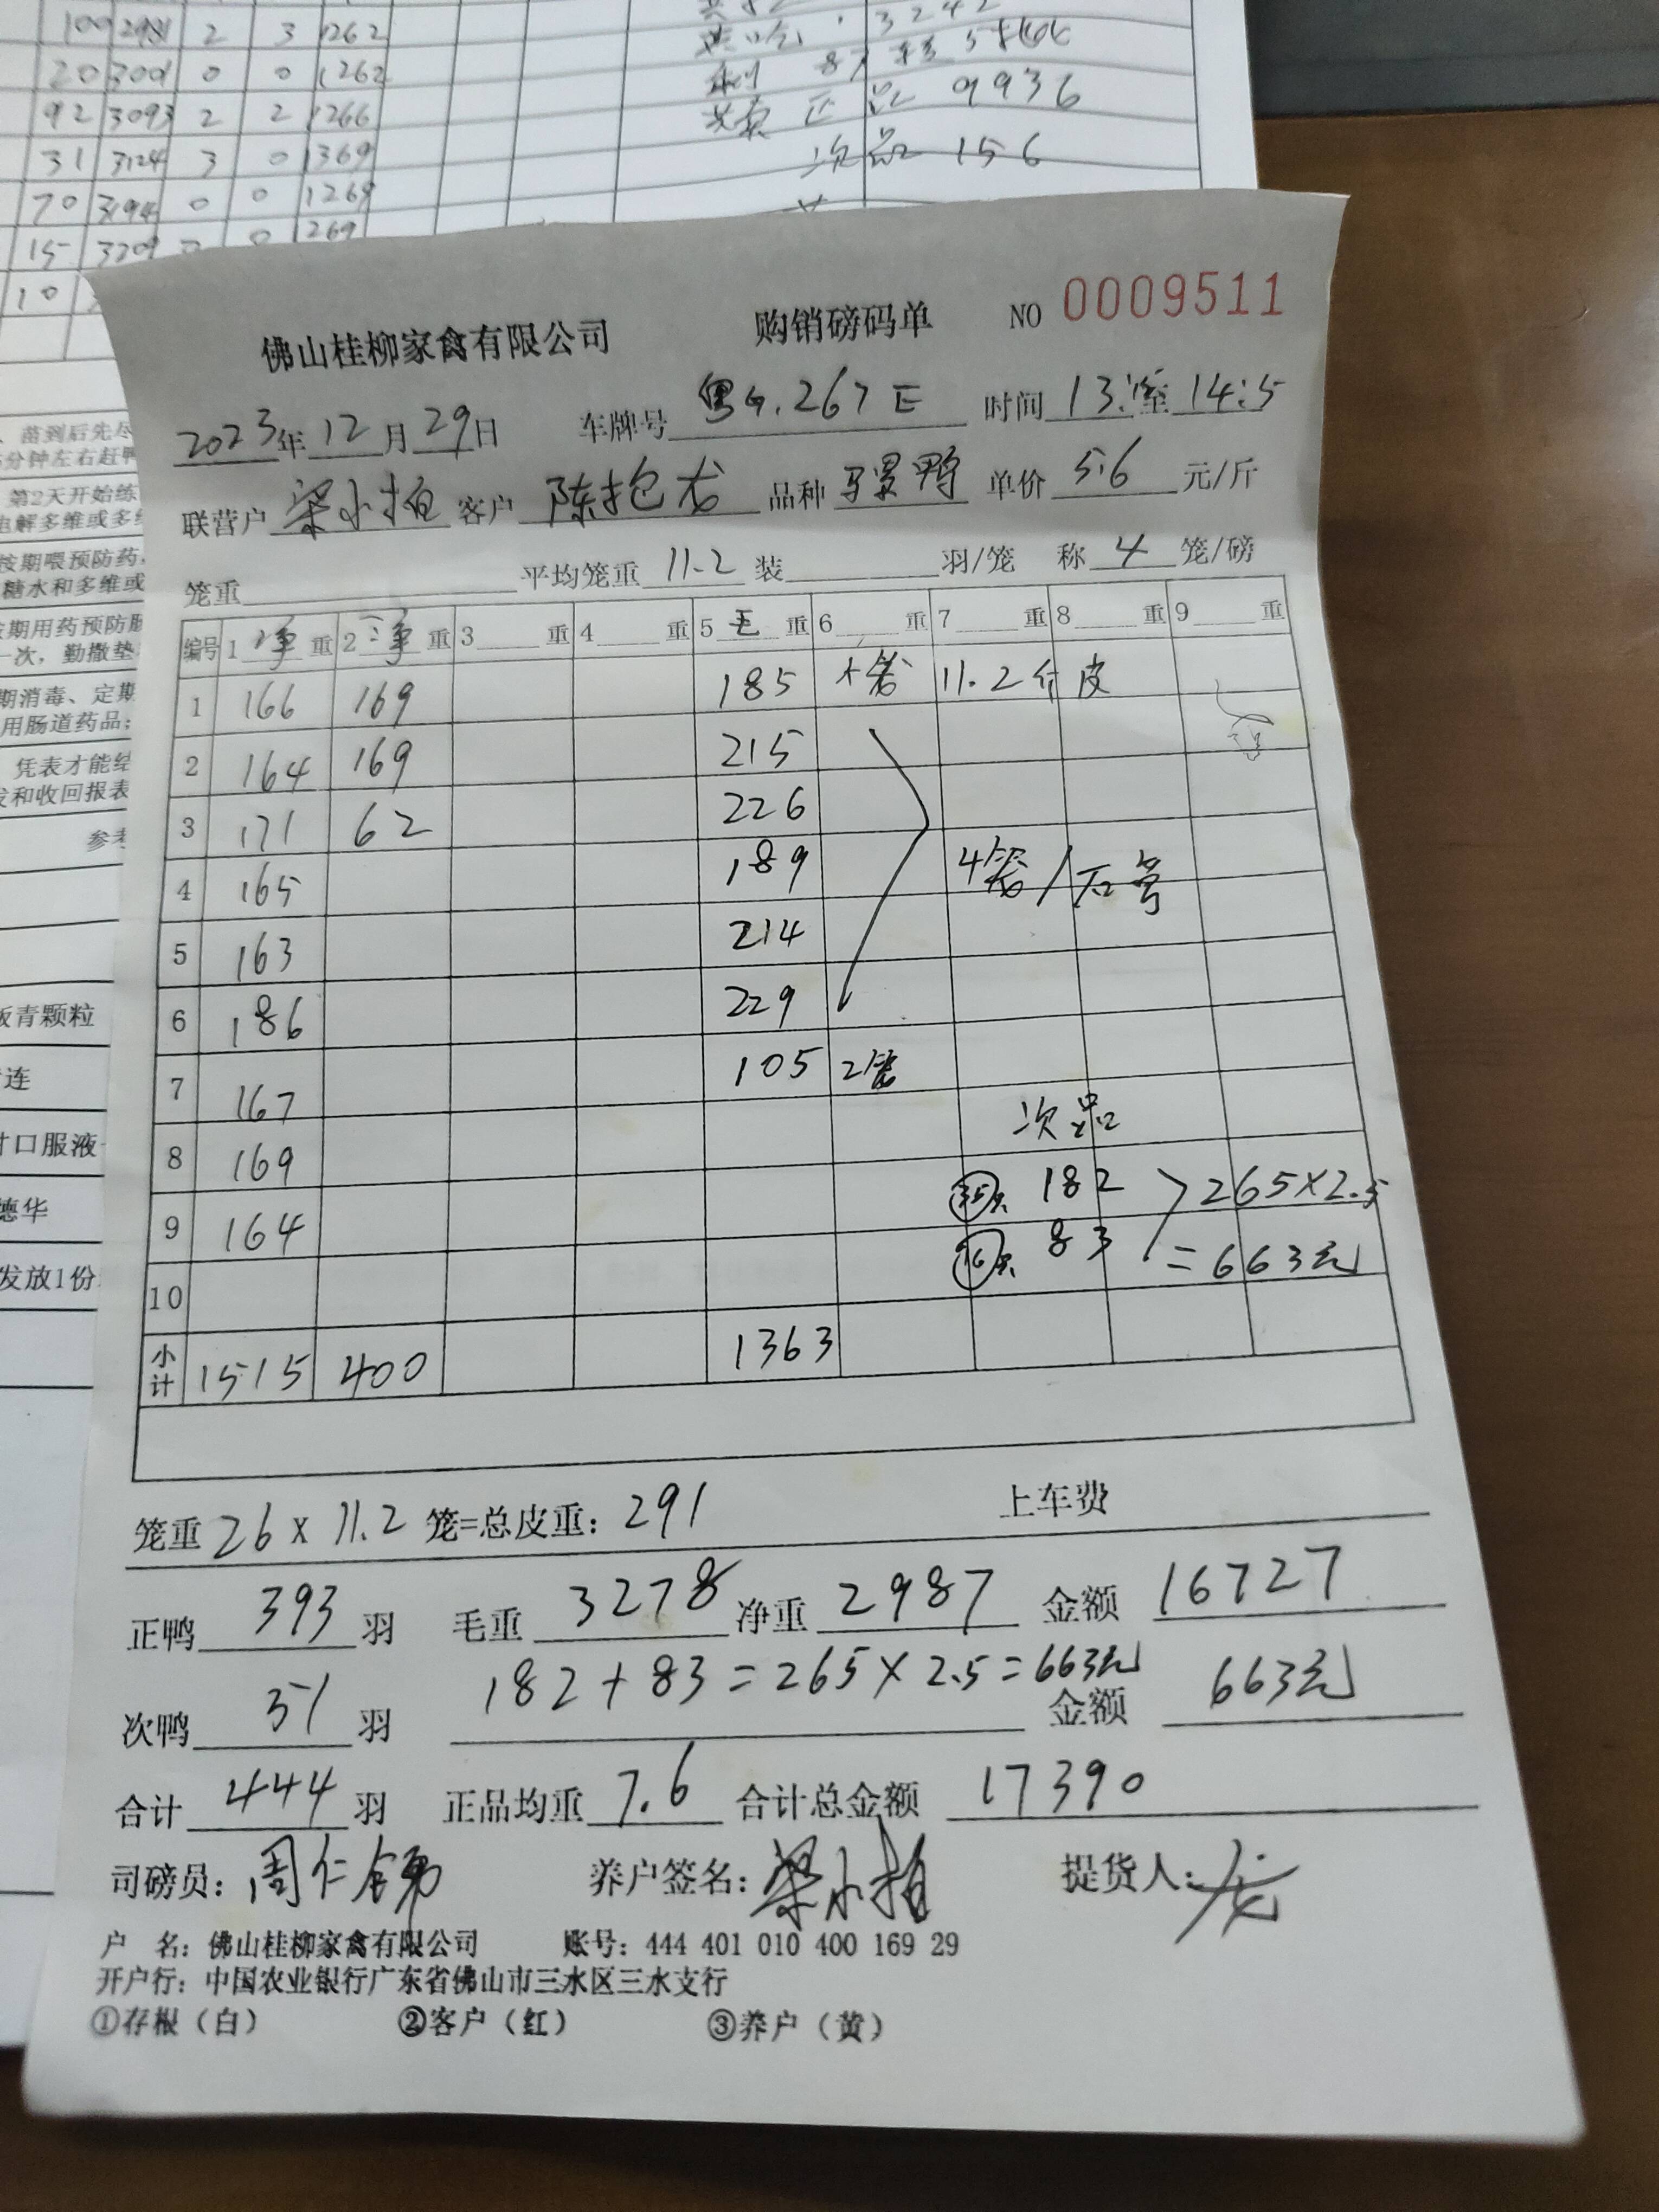 100 2981 2 3 1262
20 3001 0 0 1262
92 3093 2 2 1266
31 3124 3 0 1369
70 3194 0 0 1268
15 3209 269
10
3242
87
正品 9936
次品 156
苗到后先尽
分钟左右赶鸭
第2天开始练
电解多维或多维
按期喂预防药,
糖水和多维或
按期用药预防肠
一次, 勤撒垫
期消毒、定期
用肠道药品;
凭表才能结
发和收回报表
参考
板青颗粒
连
口服液
德华
发放1份
佛山桂柳家禽有限公司 购销磅码单 NO 0009511
2023年12月29日 车牌号 粤G.267E 时间 13: 至 14:5
联营户 梁小柏 客户 陈抱龙 品种 骡鸭 单价 5.6 元/斤
笼重 平均笼重 11.2 装 羽/笼 称 4 笼/磅
编号 1 净 重 2 净 重 3 重 4 重 5 毛 重 6 重 7 重 8 重 9 重
1 166 169 185 11.2斤 皮
2 164 169 215
3 171 62 226
4 165 189 4
5 163 214
6 186 229
7 167 105 2
8 169 次品
9 164 35只 182 265×2.5
10 16只 83 =663元
小计 1515 400 1363
笼重 26 × 11.2 笼=总皮重: 291 上车费
正鸭 393 羽 毛重 3278 净重 2987 金额 16727
次鸭 51 羽 182+83=265×2.5=663元 金额 663元
合计 444 羽 正品均重 7.6 合计总金额 17390
司磅员: 周仁 养户签名: 梁小柏 提货人: 龙
户 名: 佛山桂柳家禽有限公司 账号: 444 401 010 400 169 29
开户行: 中国农业银行广东省佛山市三水区三水支行
①存根(白) ②客户(红) ③养户(黄)